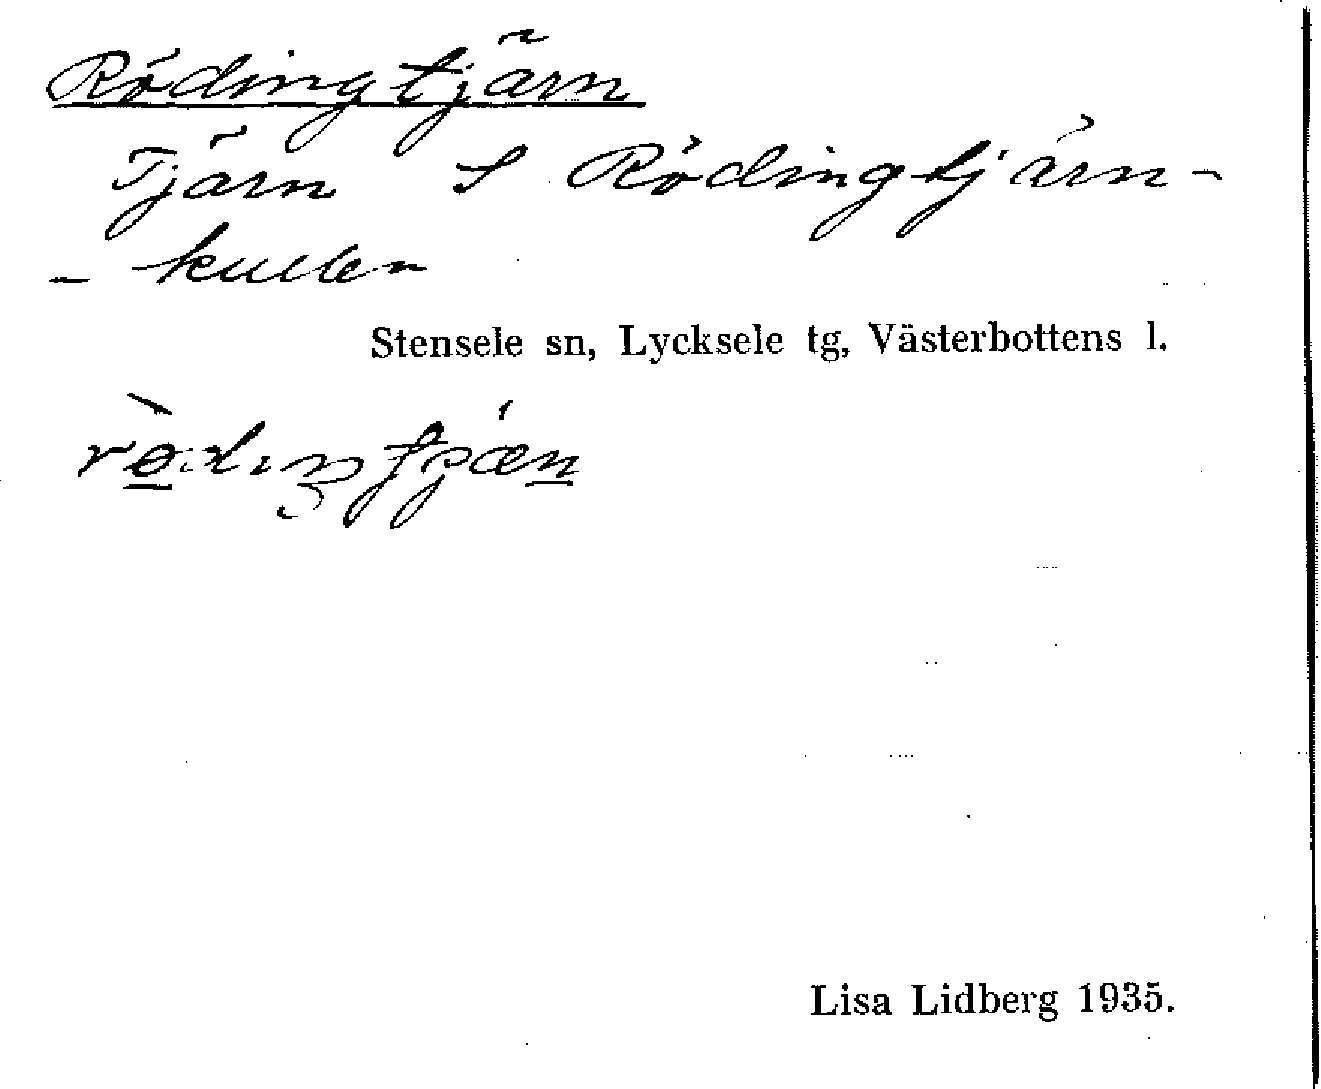 Rödingtjärn
Tjärn S Rödingtjärn-
- kullen
Stensele sn, Lycksele tg, Västerbottens l.
Lisa Lidberg 1935.